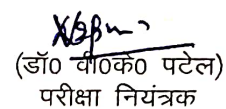 (डॉ० वी०के० पटेल)
परीक्षा नियंत्रक